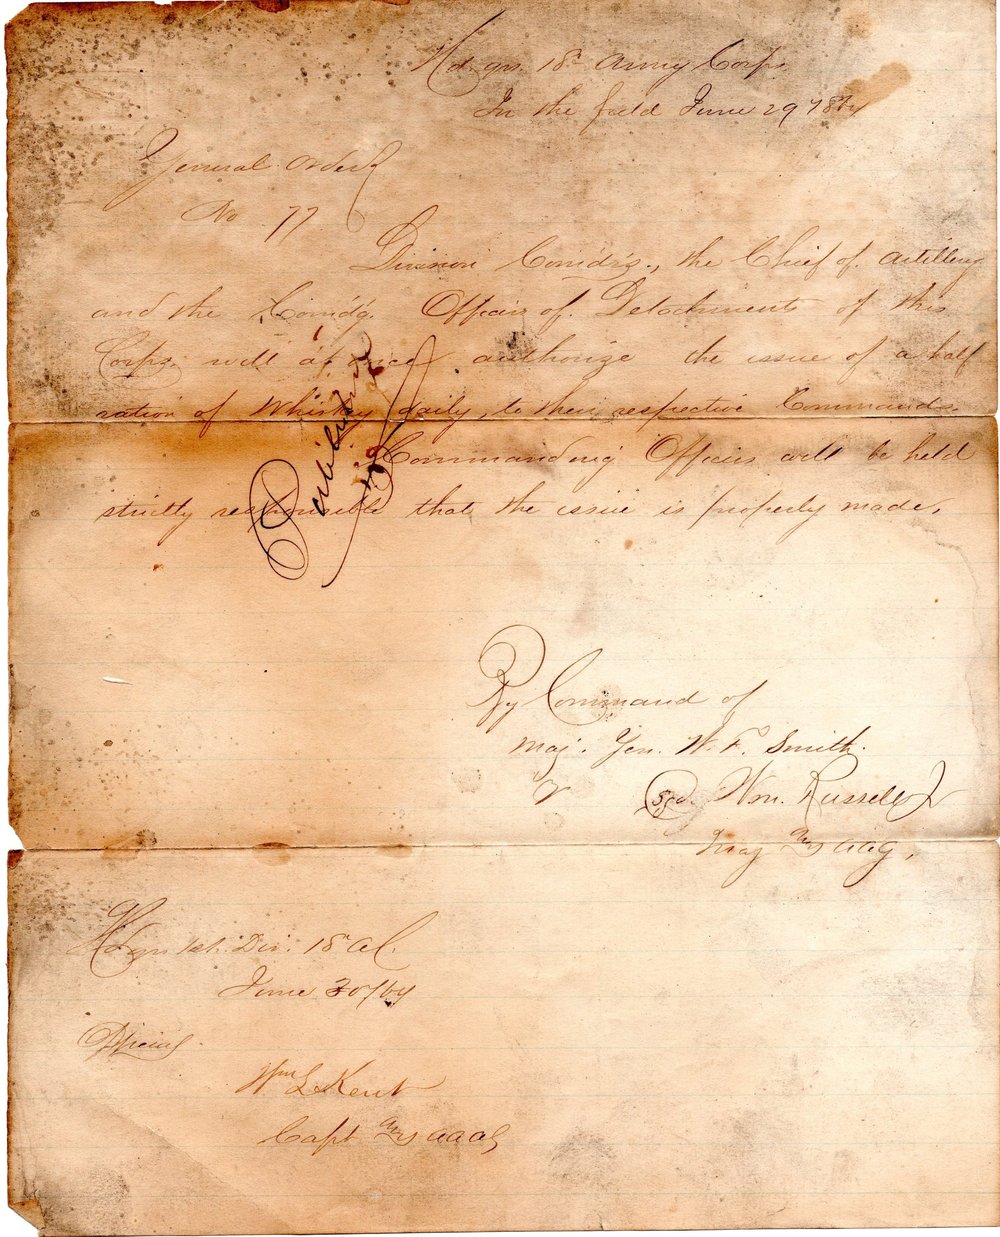 Hd. qrs. 18th Army Corps
In the field June 29th / 64
General Orders
No 77
Division Comd'rs., the Chief of Artillery
and the Comd'g. Officers of Detachments of this
Corps will at once authorize the issue of a half
ration of Whiskey daily, to their respective Commands.
Commanding Officers will be held
strictly responsible that the issue is properly made.
By Command of
Maj. Gen. W. F. Smith.
Sgd. Wm. Russell Jr
Maj & AAG.
Hd. qrs 1st. Div. 18th A.C.
June 30/64
Official
Wm L Kent
Capt & AAAG